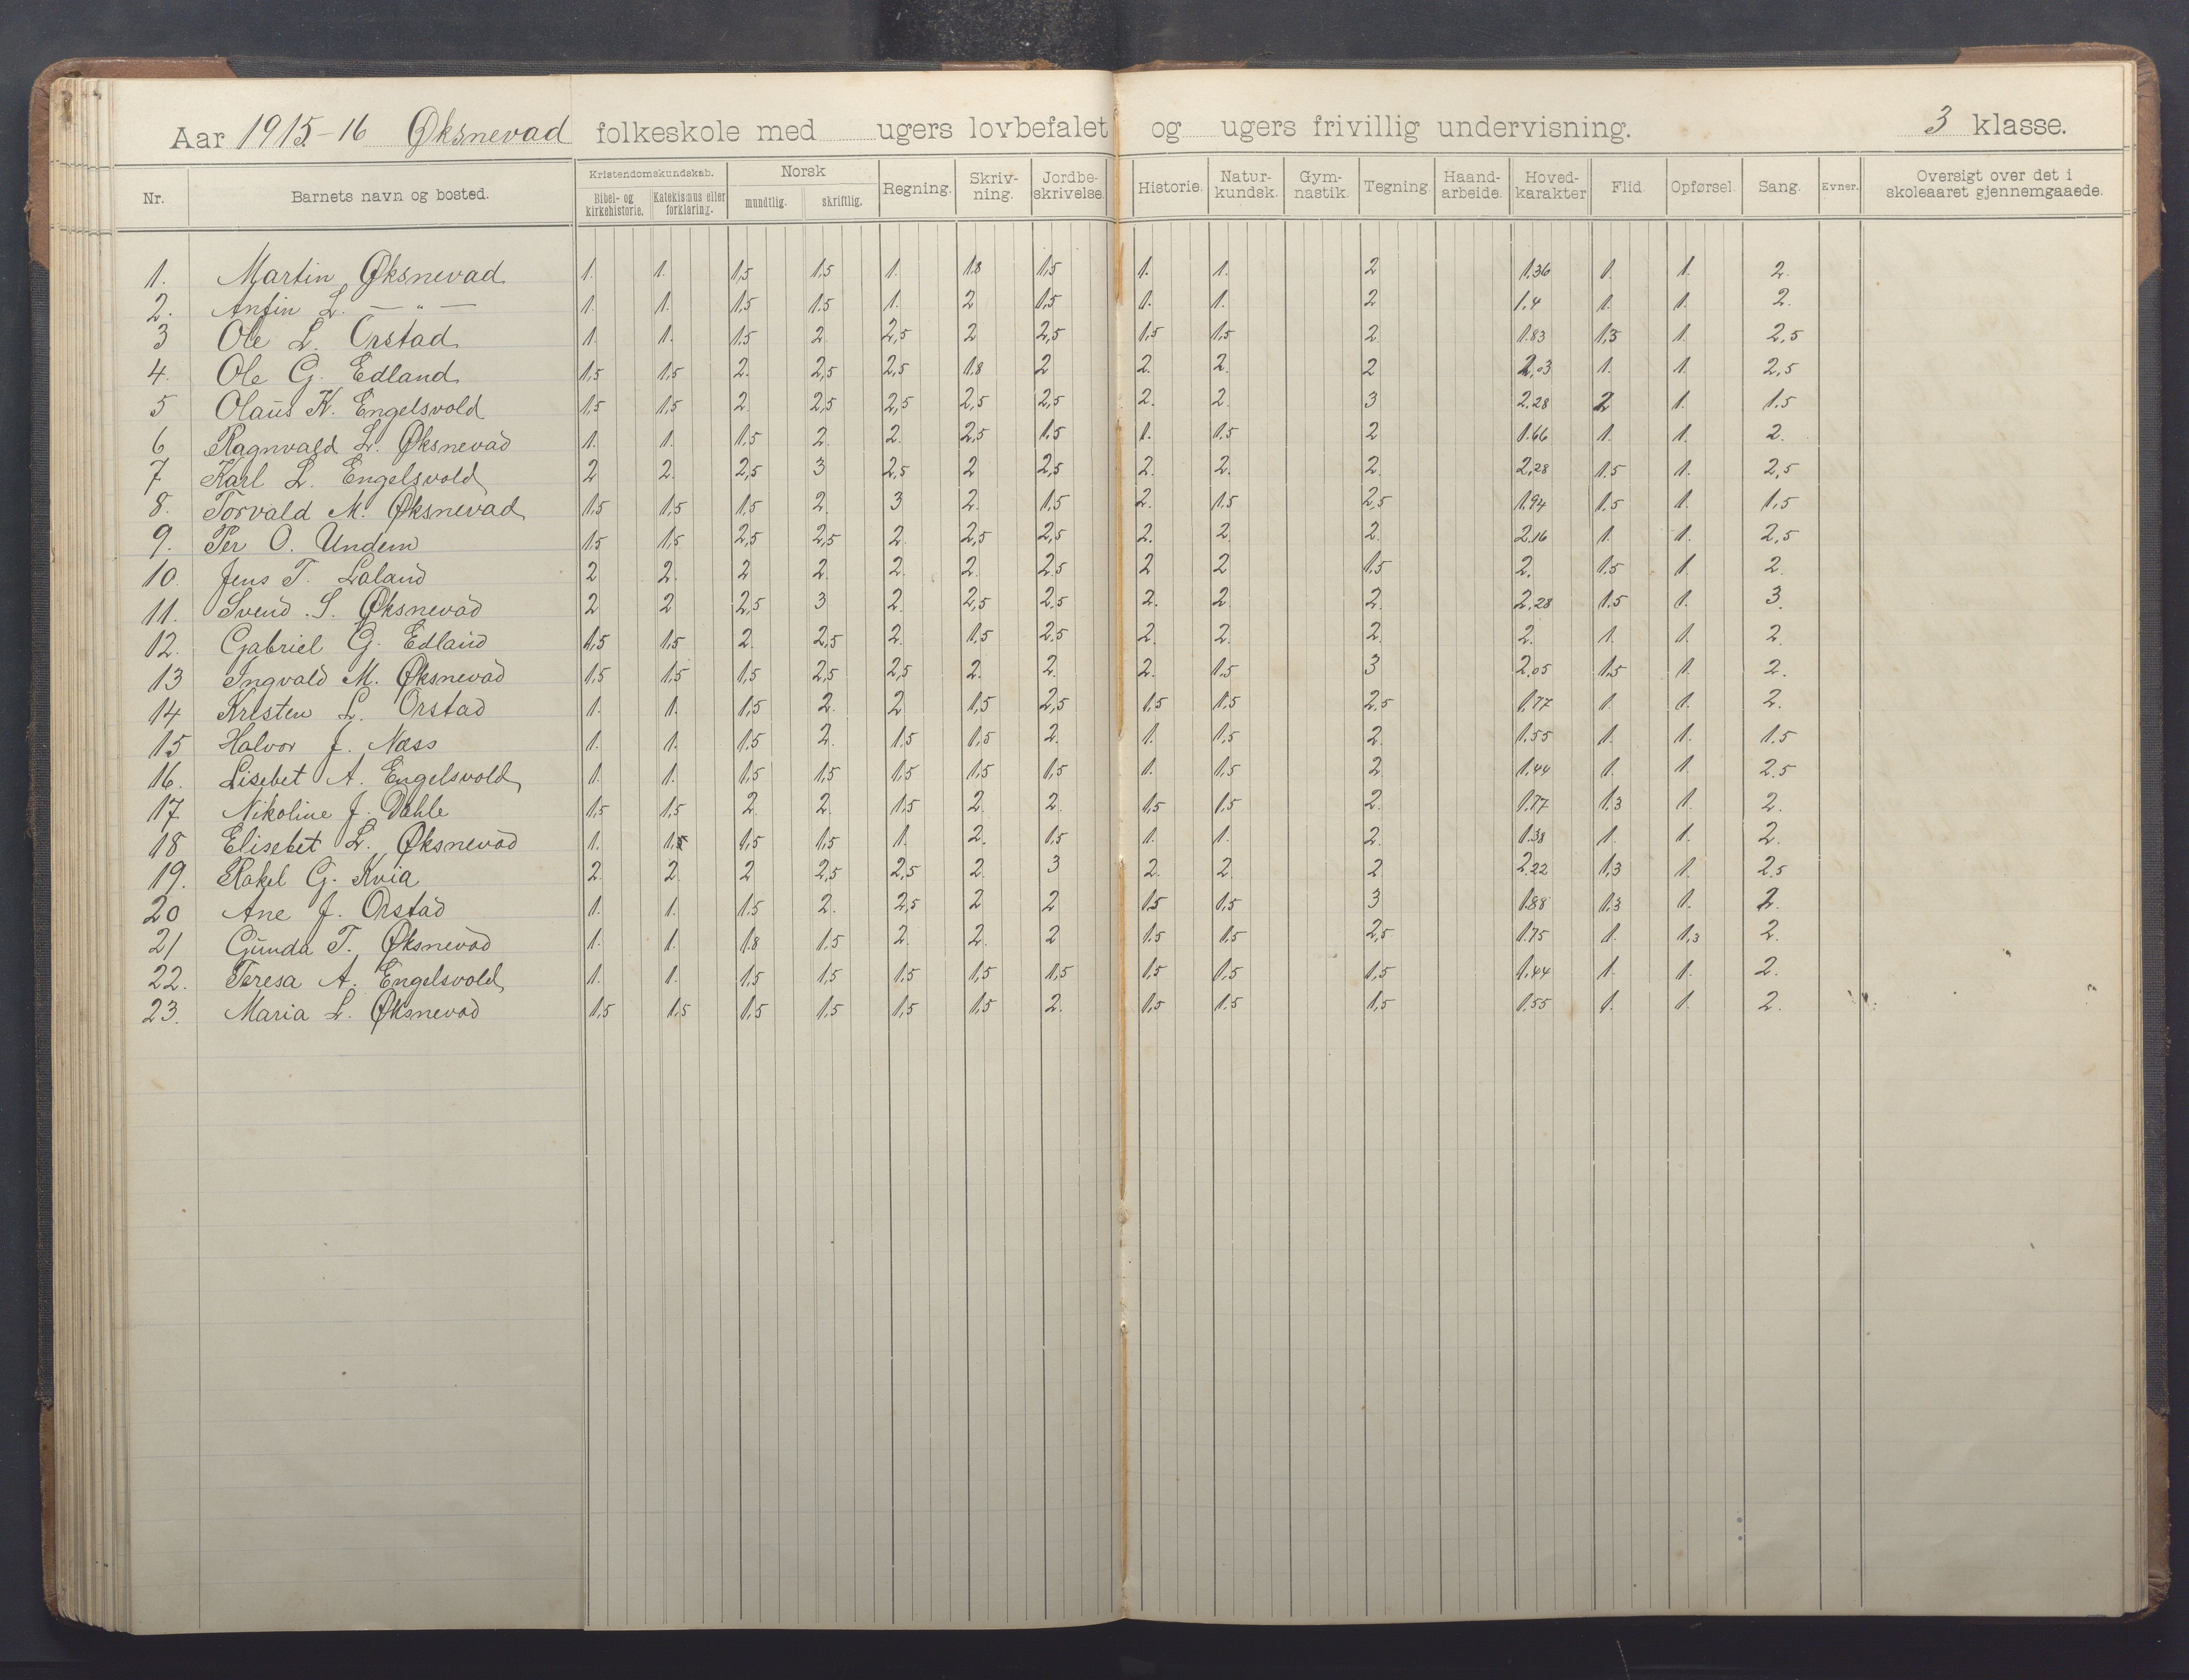 Aar 1915-16 Øksnevad folkeskole med ugers lovbefalet og ugers frivillig undervisning. 3 klasse.
Nr. Barnets navn og bosted. Kristendomskundskab. Bibel- og kirkehistorie. Katekismus eller forklaring. Norsk mundtlig. skriftlig. Regning. Skriv-ning. Jordbe-skrivelse. Historie. Natur-kundsk. Gym-nastik. Tegning Haand-arbeide. Hoved-karakter Flid. Opførsel. Sang. Evner. Oversigt over det i skoleaaret gjennemgaaede.
1. Martin Øksnevad 1. 1. 1,5 1,5 1. 1.8 1,5 1. 1. 2 1.36 1. 1. 2.
2. Anfin L. — " — 1. 1. 1,5 1.5 1. 2 1,5 1. 1. 2 1.4 1. 1. 2.
3 Ole L. Orstad 1. 1. 1.5 2. 2,5 2 2,5 1,5 1,5 2 1.83 1,3 1. 2,5
4. Ole G. Edland 1,5 1,5 2. 2,5 2,5 1.8 2 2. 2. 2 2,03 1. 1. 2,5
5 Olaus K. Engelsvold 1,5 1,5 2 2,5 2,5 2,5 2,5 2. 2. 3 2.28 2 1. 1.5
6 Ragnvald L. Øksnevad 1. 1. 1,5 2. 2. 2,5 1,5 1. 1,5 2 1.66 1. 1. 2.
7 Karl L. Engelsvold 2 2. 2,5 3 2,5 2 2,5 2. 2. 2. 2,28 1.5 1. 2,5
8. Torvald M. Øksnevad 1,5 1,5 1,5 2. 3 2. 1,5 2. 1,5 2,5 1.94 1,5 1. 1,5
9. Per O. Undem 1,5 1,5 2,5 2,5 2. 2,5 2,5 2. 2. 2. 2.16 1. 1. 2,5
10. Jens T. Laland 2 2. 2 2. 2. 2. 2.5 2 2 1.5 2. 1.5 1. 2.
11. Svend S. Øksnevad 2 2 2,5 3 2. 2,5 2,5 2. 2. 2. 2,28 1.5 1. 3.
12. Gabriel G. Edland 1,5 1,5 2. 2,5 2. 1,5 2.5 2. 2. 2. 2. 1. 1. 2.
13 Ingvald M. Øksnevad 1,5 1,5 1,5 2,5 2,5 2. 2. 2. 1.5 3 2.05 1.5 1. 2.
14 Kristen L. Orstad 1. 1. 1,5 2. 2 1,5 2,5 1,5 1,5 2,5 1.77 1. 1. 2.
15 Halvor J. Næss 1. 1. 1.5 2. 1.5 1.5 2. 1. 1,5 2. 1.55 1. 1. 1.5
16. Lisebet A. Engelsvold 1. 1. 1.5 1,5 1,5 1,5 1,5 1. 1,5 2. 1.44 1. 1. 2.5
17. Nikoline J. Dahle 1,5 1,5 2 2. 1.5 2. 2. 1,5 1,5 2. 1.77 1.3 1. 2.
18 Elisebet L. Øksnevad 1. 1,5 1,5 1,5 1. 2. 1.5 1. 1. 2. 1.38 1. 1. 2.
19. Rakel G. Kvia 2. 2. 2 2,5 2,5 2. 3 2. 2. 2 2.22 1,3 1. 2.5
20 Ane J. Orstad 1. 1. 1.5 2. 2,5 2 2 1.5 1,5 3 1.88 1.3 1. 2.
21 Gunda T. Øksnevad 1. 1. 1.8 1.5 2. 2. 2 1.5 1,5 2,5 1.75 1. 1,3 2.
22. Teresa A. Engelsvold 1. 1. 1,5 1,5 1.5 1,5 1,5 1,5 1,5 1,5 1.44 1. 1. 2.
23. Maria L. Øksnevad 1,5 1,5 1,5 1,5 1,5 1,5 2. 1,5 1.5 1,5 1.55 1. 1. 2.